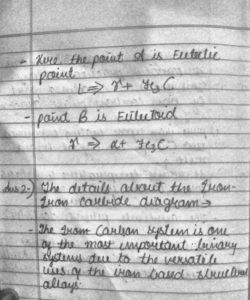 - Here, the point A is Eutectic
point
L ⇒ γ + Fe3C
- point B is Eutectoid
γ ⇒ α + Fe3C
Ans 2-) The details about the Iron-
Iron carbide diagram →
- The Iron Carbon system is one
of the most important binary
systems due to the versatile
uses of the iron based structural
alloys.